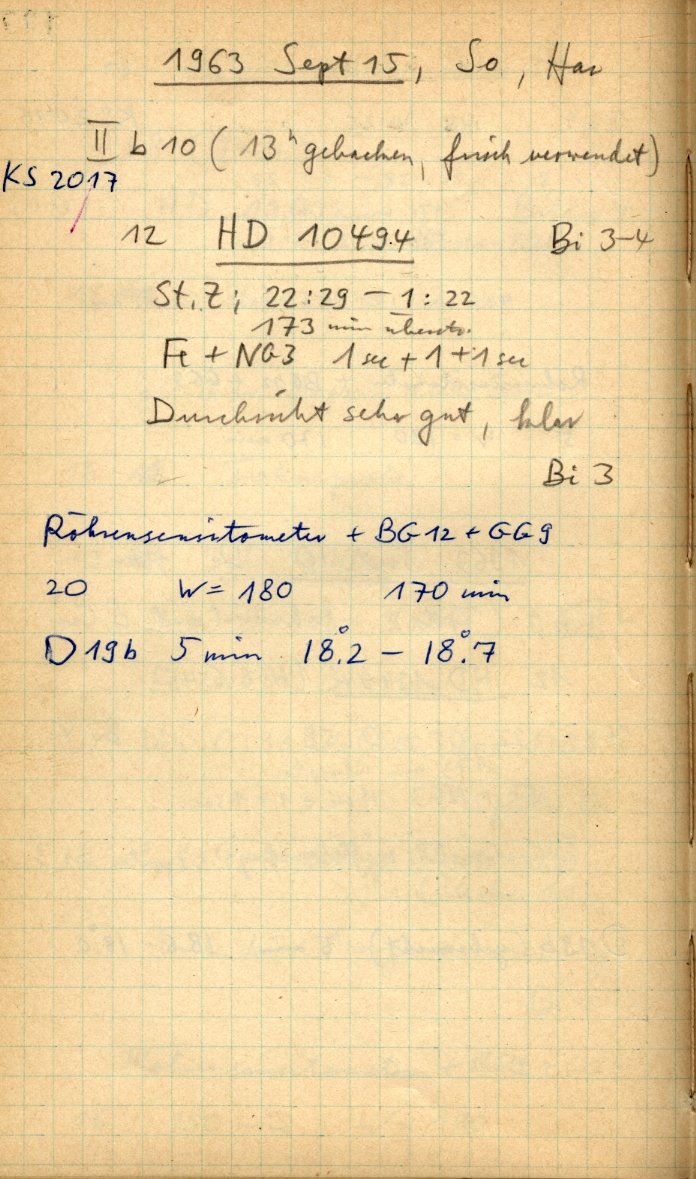 1963 Sept 15, So, Hav
II b 10 (13h gebacken, frisch verwendet)
KS 2017
12 HD 10494 Bi 3-4
St.Z; 22:29 - 1:22
173 min
Fe + NG3 1 sec + 1 + 1 sec
Durchsicht sehr gut, klar
Bi 3
Röhrensensitometer + BG12 + GG9
20 W = 180 170 min
D19b 5 min 18°.2 - 18°.7